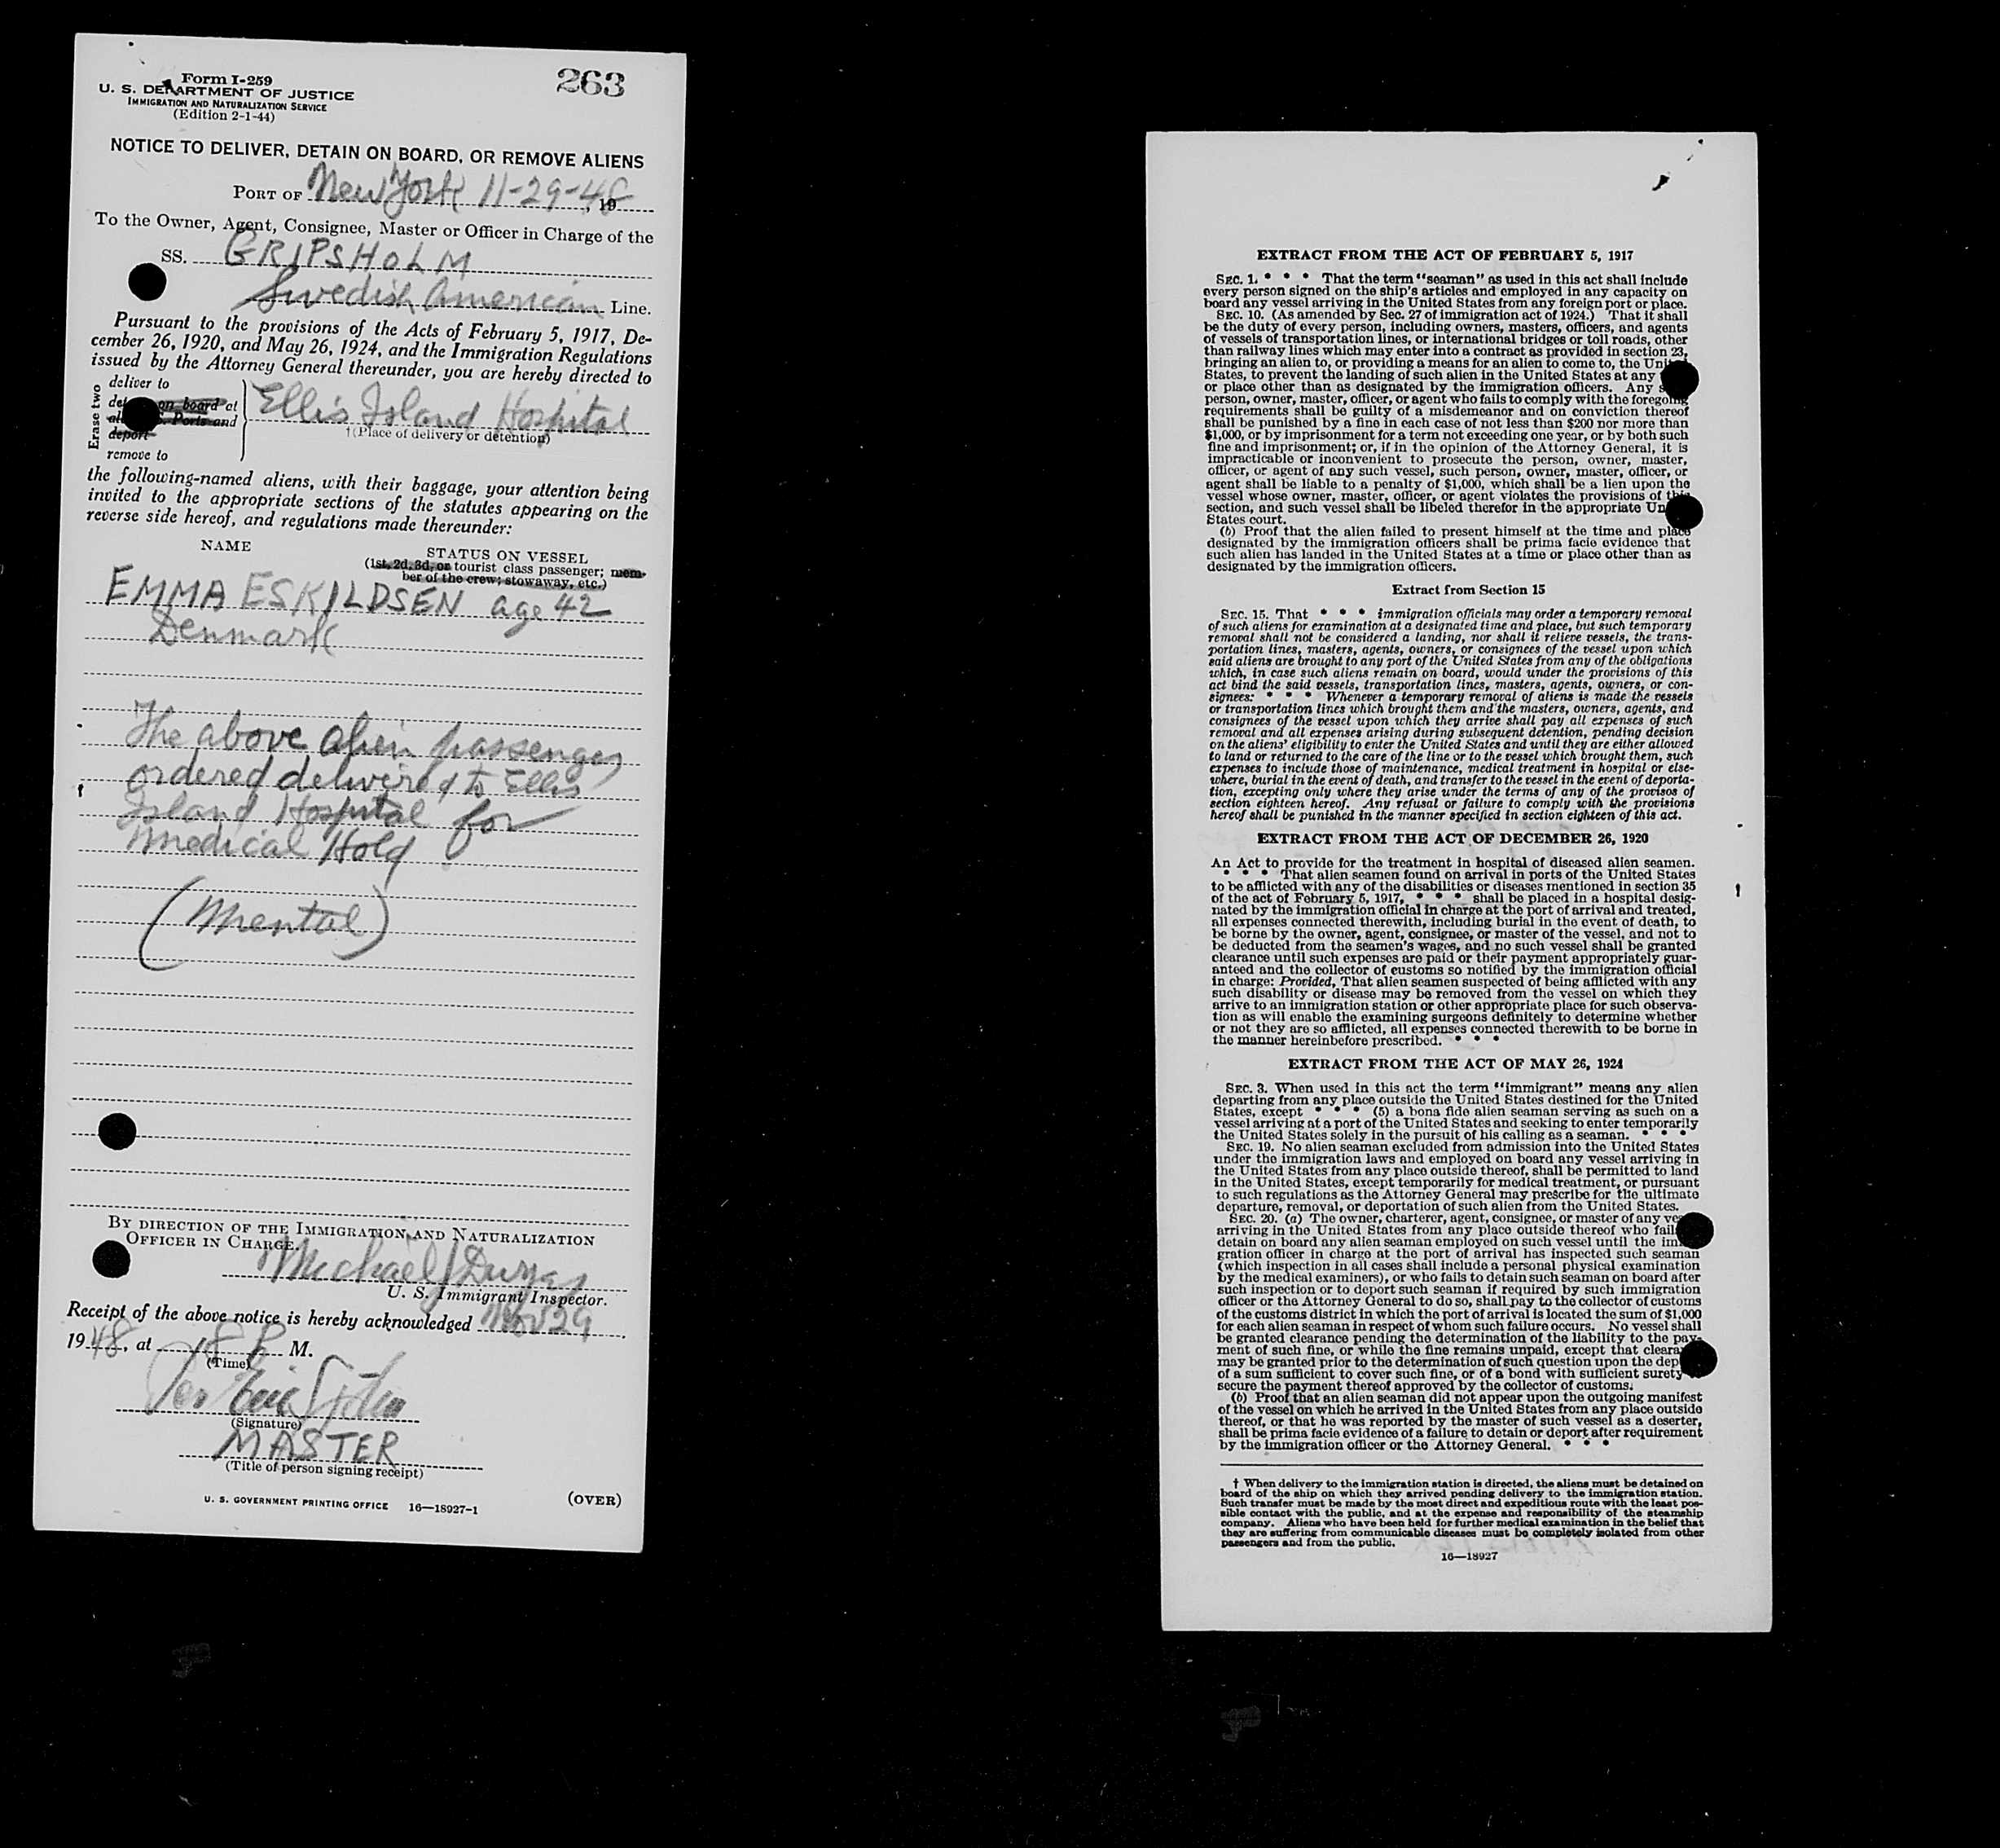 Form I-259
U. S. DEPARTMENT OF JUSTICE
IMMIGRATION AND NATURALIZATION SERVICE
(Edition 2-1-44)
263
NOTICE TO DELIVER, DETAIN ON BOARD, OR REMOVE ALIENS
PORT OF New York 11-29-48, 19
To the Owner, Agent, Consignee, Master or Officer in Charge of the
SS. GRIPSHOLM
Swedish American Line.
Pursuant to the provisions of the Acts of February 5, 1917, De-
cember 26, 1920, and May 26, 1924, and the Immigration Regulations
issued by the Attorney General thereunder, you are hereby directed to
Erase two
deliver to
on board at
Ports and
deport
remove to
Ellis Island Hospital
†(Place of delivery or detention)
the following-named aliens, with their baggage, your attention being
invited to the appropriate sections of the statutes appearing on the
reverse side hereof, and regulations made thereunder:
NAME
STATUS ON VESSEL
(1st, 2d, 3d, or tourist class passenger; mem-
ber of the crew; stowaway, etc.)
EMMA ESKILDSEN age 42
Denmark
The above alien passenger
ordered delivered to Ellis
Island Hospital for
Medical Hold
(Mental)
BY DIRECTION OF THE IMMIGRATION AND NATURALIZATION
OFFICER IN CHARGE.
Michael J
U. S. Immigrant Inspector.
Receipt of the above notice is hereby acknowledged Nov 29
1948, at P M.
(Time)
(Signature)
MASTER
(Title of person signing receipt)
U. S. GOVERNMENT PRINTING OFFICE 16—18927-1
(OVER)
EXTRACT FROM THE ACT OF FEBRUARY 5, 1917
SEC. 1. * * * That the term "seaman" as used in this act shall include
every person signed on the ship's articles and employed in any capacity on
board any vessel arriving in the United States from any foreign port or place.
SEC. 10. (As amended by Sec. 27 of immigration act of 1924.) That it shall
be the duty of every person, including owners, masters, officers, and agents
of vessels of transportation lines, or international bridges or toll roads, other
than railway lines which may enter into a contract as provided in section 23,
bringing an alien to, or providing a means for an alien to come to, the Unit
States, to prevent the landing of such alien in the United States at any
or place other than as designated by the immigration officers. Any s
person, owner, master, officer, or agent who fails to comply with the foregoing
requirements shall be guilty of a misdemeanor and on conviction thereof
shall be punished by a fine in each case of not less than $200 nor more than
$1,000, or by imprisonment for a term not exceeding one year, or by both such
fine and imprisonment; or, if in the opinion of the Attorney General, it is
impracticable or inconvenient to prosecute the person, owner, master,
officer, or agent of any such vessel, such person, owner, master, officer, or
agent shall be liable to a penalty of $1,000, which shall be a lien upon the
vessel whose owner, master, officer, or agent violates the provisions of this
section, and such vessel shall be libeled therefor in the appropriate Un
States court.
(b) Proof that the alien failed to present himself at the time and place
designated by the immigration officers shall be prima facie evidence that
such alien has landed in the United States at a time or place other than as
designated by the immigration officers.
Extract from Section 15
SEC. 15. That * * * immigration officials may order a temporary removal
of such aliens for examination at a designated time and place, but such temporary
removal shall not be considered a landing, nor shall it relieve vessels, the trans-
portation lines, masters, agents, owners, or consignees of the vessel upon which
said aliens are brought to any port of the United States from any of the obligations
which, in case such aliens remain on board, would under the provisions of this
act bind the said vessels, transportation lines, masters, agents, owners, or con-
signees: * * * Whenever a temporary removal of aliens is made the vessels
or transportation lines which brought them and the masters, owners, agents, and
consignees of the vessel upon which they arrive shall pay all expenses of such
removal and all expenses arising during subsequent detention, pending decision
on the aliens' eligibility to enter the United States and until they are either allowed
to land or returned to the care of the line or to the vessel which brought them, such
expenses to include those of maintenance, medical treatment in hospital or else-
where, burial in the event of death, and transfer to the vessel in the event of deporta-
tion, excepting only where they arise under the terms of any of the provisos of
section eighteen hereof. Any refusal or failure to comply with the provisions
hereof shall be punished in the manner specified in section eighteen of this act.
EXTRACT FROM THE ACT OF DECEMBER 26, 1920
An Act to provide for the treatment in hospital of diseased alien seamen.
* * * That alien seamen found on arrival in ports of the United States
to be afflicted with any of the disabilities or diseases mentioned in section 35
of the act of February 5, 1917, * * * shall be placed in a hospital desig-
nated by the immigration official in charge at the port of arrival and treated,
all expenses connected therewith, including burial in the event of death, to
be borne by the owner, agent, consignee, or master of the vessel, and not to
be deducted from the seamen's wages, and no such vessel shall be granted
clearance until such expenses are paid or their payment appropriately guar-
anteed and the collector of customs so notified by the immigration official
in charge: Provided, That alien seamen suspected of being afflicted with any
such disability or disease may be removed from the vessel on which they
arrive to an immigration station or other appropriate place for such observa-
tion as will enable the examining surgeons definitely to determine whether
or not they are so afflicted, all expenses connected therewith to be borne in
the manner hereinbefore prescribed. * * *
EXTRACT FROM THE ACT OF MAY 26, 1924
SEC. 3. When used in this act the term "immigrant" means any alien
departing from any place outside the United States destined for the United
States, except * * * (5) a bona fide alien seaman serving as such on a
vessel arriving at a port of the United States and seeking to enter temporarily
the United States solely in the pursuit of his calling as a seaman. * * *
SEC. 19. No alien seaman excluded from admission into the United States
under the immigration laws and employed on board any vessel arriving in
the United States from any place outside thereof, shall be permitted to land
in the United States, except temporarily for medical treatment, or pursuant
to such regulations as the Attorney General may prescribe for the ultimate
departure, removal, or deportation of such alien from the United States.
SEC. 20. (a) The owner, charterer, agent, consignee, or master of any ve
arriving in the United States from any place outside thereof who fail
detain on board any alien seaman employed on such vessel until the im
gration officer in charge at the port of arrival has inspected such seaman
(which inspection in all cases shall include a personal physical examination
by the medical examiners), or who fails to detain such seaman on board after
such inspection or to deport such seaman if required by such immigration
officer or the Attorney General to do so, shall pay to the collector of customs
of the customs district in which the port of arrival is located the sum of $1,000
for each alien seaman in respect of whom such failure occurs. No vessel shall
be granted clearance pending the determination of the liability to the pay-
ment of such fine, or while the fine remains unpaid, except that cleara
may be granted prior to the determination of such question upon the dep
of a sum sufficient to cover such fine, or of a bond with sufficient surety
secure the payment thereof approved by the collector of customs.
(b) Proof that an alien seaman did not appear upon the outgoing manifest
of the vessel on which he arrived in the United States from any place outside
thereof, or that he was reported by the master of such vessel as a deserter,
shall be prima facie evidence of a failure to detain or deport after requirement
by the immigration officer or the Attorney General. * * *
† When delivery to the immigration station is directed, the aliens must be detained on
board of the ship on which they arrived pending delivery to the immigration station.
Such transfer must be made by the most direct and expeditious route with the least pos-
sible contact with the public, and at the expense and responsibility of the steamship
company. Aliens who have been held for further medical examination in the belief that
they are suffering from communicable diseases must be completely isolated from other
passengers and from the public.
16—18927